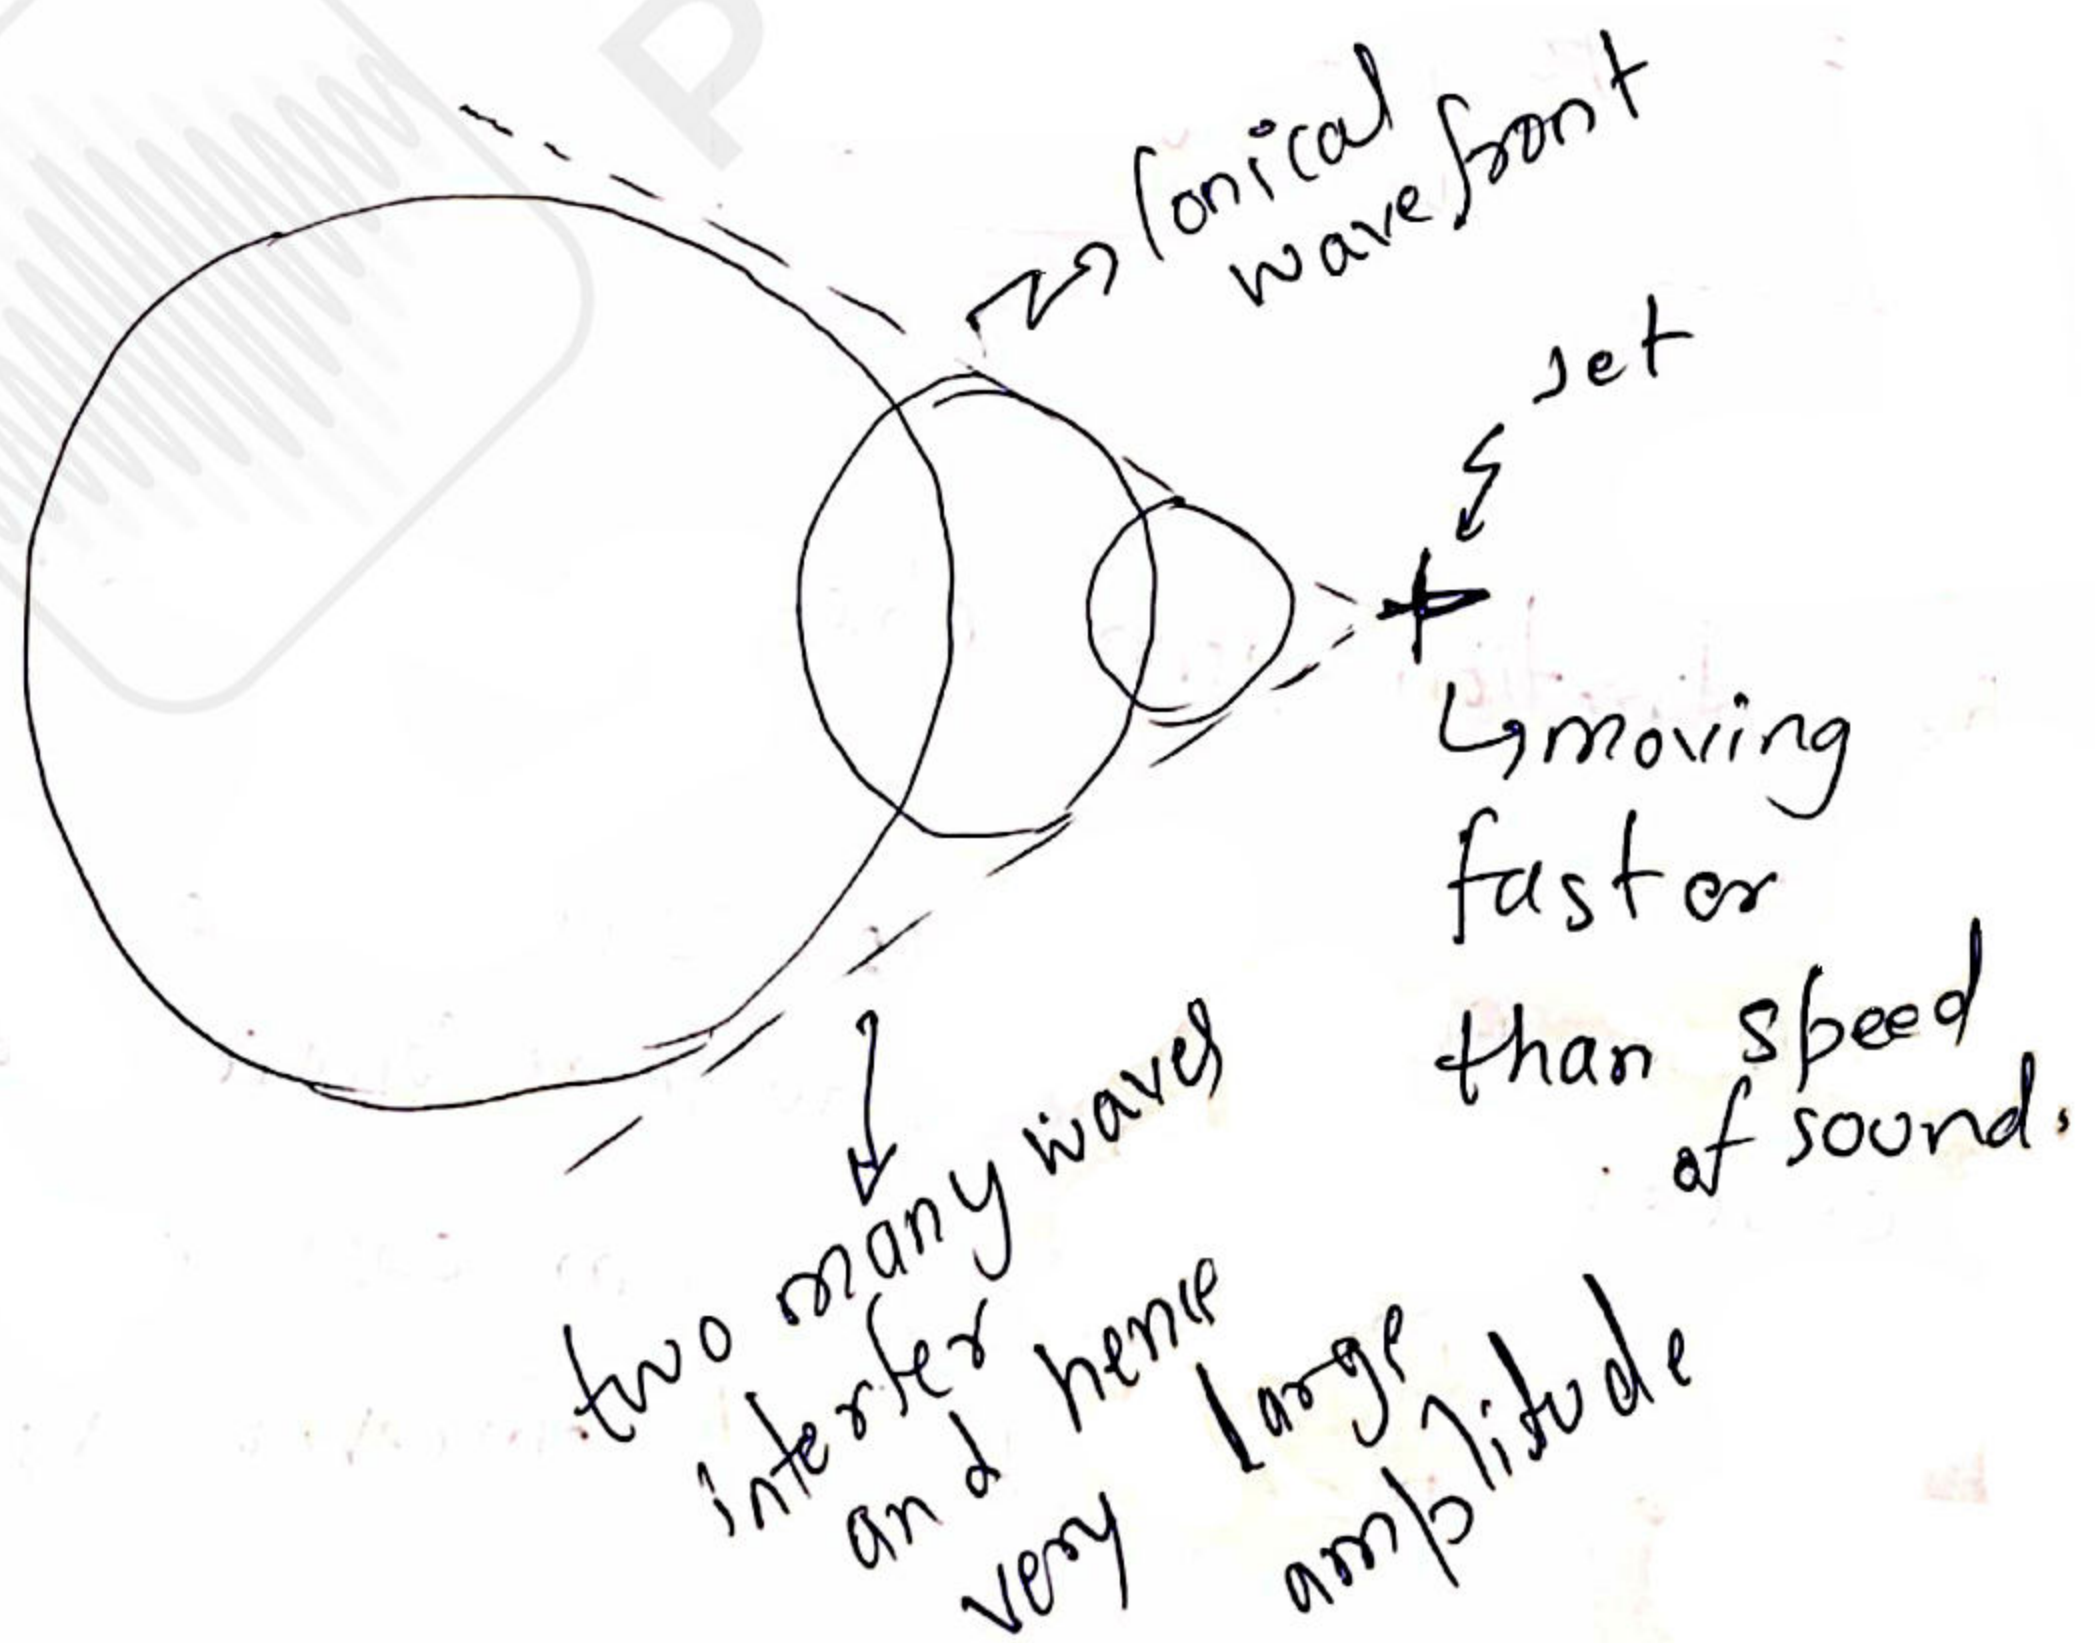 Conical
wavefront
Jet
moving
faster
than speed
of sound.
two many waves
interfer
and hence
very large
amplitude
P